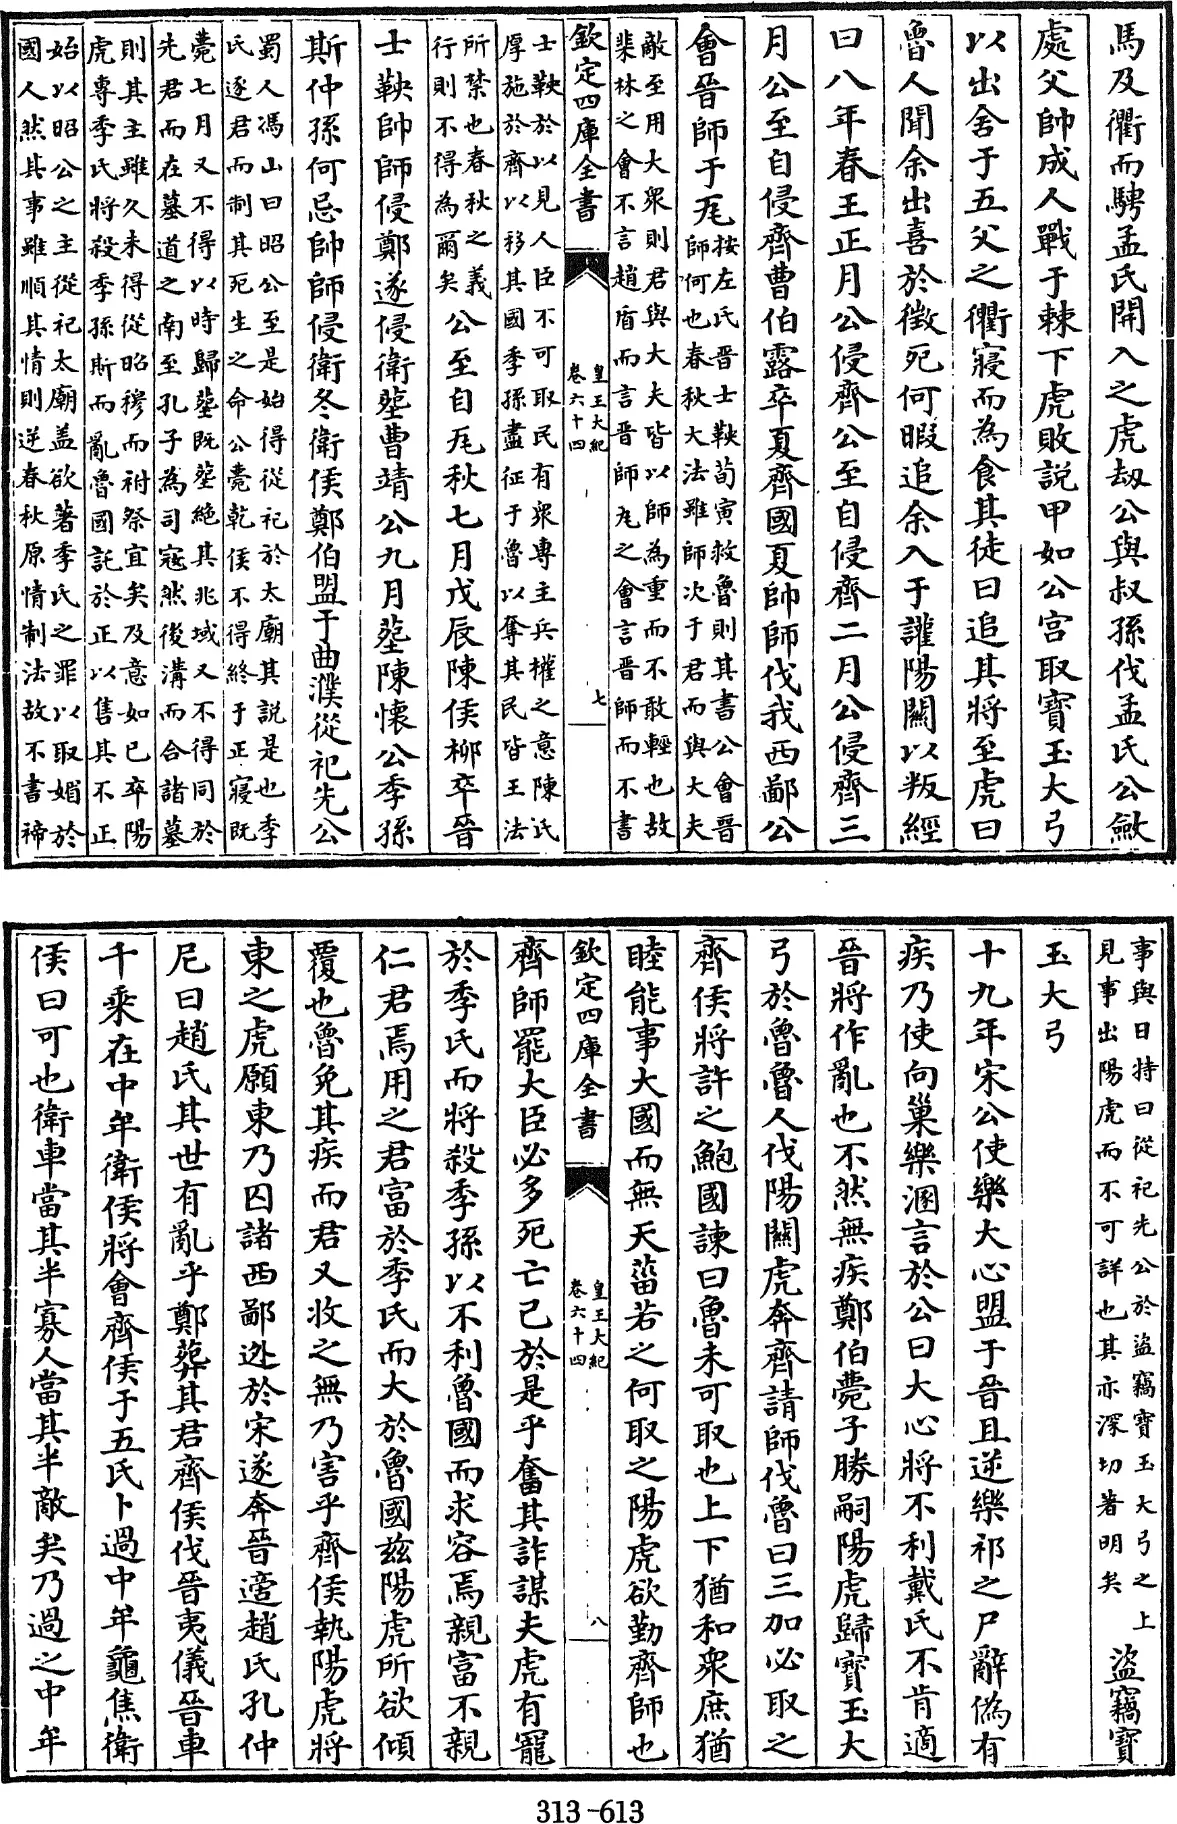 馬及衢而騁孟氏開入之虎劫公與叔孫伐孟氏公斂
處父帥成人戰于棘下虎敗說甲如公宮取寶玉大弓
以出舍于五父之衢寢而為食其徒曰追其將至虎曰
魯人聞余出喜於徵死何暇追余入于讙陽關以叛經
曰八年春王正月公侵齊公至自侵齊二月公侵齊三
月公至自侵齊曹伯露卒夏齊國夏帥師伐我西鄙公
會晉師于瓦
按左氏晉士鞅荀寅救魯則其書公會晉
師何也春秋大法雖師次于君而與大夫
敵至用大衆則君與大夫皆以師為重而不敢輕也故
棐林之會不言趙盾而言晉師瓦之會言晉師而不書
欽定四庫全書
皇王大紀
卷六十四
七
士鞅於以見人臣不可取民有衆專主兵權之意陳氏
厚施於齊以移其國季孫盡征于魯以奪其民皆王法
所禁也春秋之義
行則不得為爾矣
公至自瓦秋七月戊辰陳侯柳卒晉
士鞅帥師侵鄭遂侵衛塟曹靖公九月塟陳懷公季孫
斯仲孫何忌帥師侵衛冬衛侯鄭伯盟于曲濮從祀先公
蜀人馮山曰昭公至是始得從祀於太廟其說是也季
氏逐君而制其死生之命公薨乾侯不得終于正寢既
薨七月又不得以時歸塟既塟絶其兆域又不得同於
先君而在墓道之南至孔子為司寇然後溝而合諸墓
則其主雖久未得從昭穆而祔祭宜矣及意如已卒陽
虎專季氏將殺季孫斯而亂魯國託於正以售其不正
始以昭公之主從祀太廟盖欲著季氏之罪以取媚於
國人然其事雖順其情則逆春秋原情制法故不書禘
事與日特曰從祀先公於盜竊寶玉大弓之上
見事出陽虎而不可詳也其亦深切著明矣
盜竊寶
玉大弓
十九年宋公使樂大心盟于晉且逆樂祁之尸辭偽有
疾乃使向巢樂溷言於公曰大心將不利戴氏不肯適
晉將作亂也不然無疾鄭伯薨子勝嗣陽虎歸寶玉大
弓於魯魯人伐陽關虎奔齊請師伐魯曰三加必取之
齊侯將許之鮑國諫曰魯未可取也上下猶和衆庶猶
睦能事大國而無天菑若之何取之陽虎欲勤齊師也
欽定四庫全書
皇王大紀
卷六十四
八
齊師罷大臣必多死亡己於是乎奮其詐謀夫虎有寵
於季氏而將殺季孫以不利魯國而求容焉親富不親
仁君焉用之君富於季氏而大於魯國兹陽虎所欲傾
覆也魯免其疾而君又收之無乃害乎齊侯執陽虎將
東之虎願東乃囚諸西鄙迯於宋遂奔晉適趙氏孔仲
尼曰趙氏其世有亂乎鄭葬其君齊侯伐晉夷儀晉車
千乘在中牟衛侯將會齊侯于五氏卜過中牟龜焦衛
侯曰可也衛車當其半寡人當其半敵矣乃過之中牟
313-613